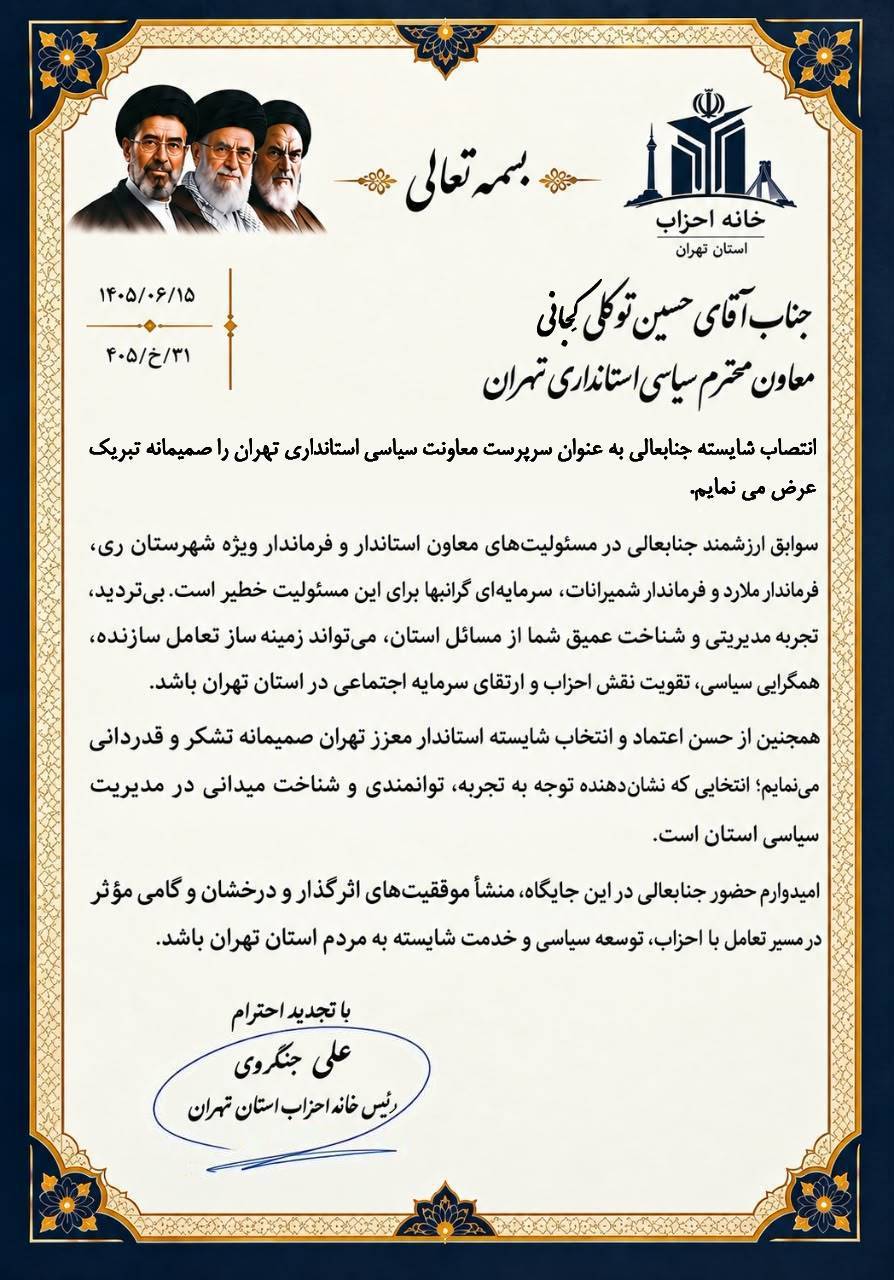 بسمه تعالی
خانه احزاب
استان تهران
۱۴۰۵/۰۶/۱۵
۳۱/خ/۴۰۵
جناب آقای حسین توکلی کجانی
معاون محترم سیاسی استانداری تهران
انتصاب شایسته جنابعالی به عنوان سرپرست معاونت سیاسی استانداری تهران را صمیمانه تبریک
عرض می نمایم.
سوابق ارزشمند جنابعالی در مسئولیت‌های معاون استاندار و فرماندار ویژه شهرستان ری،
فرماندار ملارد و فرماندار شمیرانات، سرمایه‌ای گرانبها برای این مسئولیت خطیر است. بی‌تردید،
تجربه مدیریتی و شناخت عمیق شما از مسائل استان، می‌تواند زمینه ساز تعامل سازنده،
همگرایی سیاسی، تقویت نقش احزاب و ارتقای سرمایه اجتماعی در استان تهران باشد.
همجنین از حسن اعتماد و انتخاب شایسته استاندار معزز تهران صمیمانه تشکر و قدردانی
می‌نمایم؛ انتخایی که نشان‌دهنده توجه به تجربه، توانمندی و شناخت میدانی در مدیریت
سیاسی استان است.
امیدوارم حضور جنابعالی در این جایگاه، منشأ موفقیت‌های اثرگذار و درخشان و گامی مؤثر
در مسیر تعامل با احزاب، توسعه سیاسی و خدمت شایسته به مردم استان تهران باشد.
با تجدید احترام
علی جنگروی
رئیس خانه احزاب استان تهران